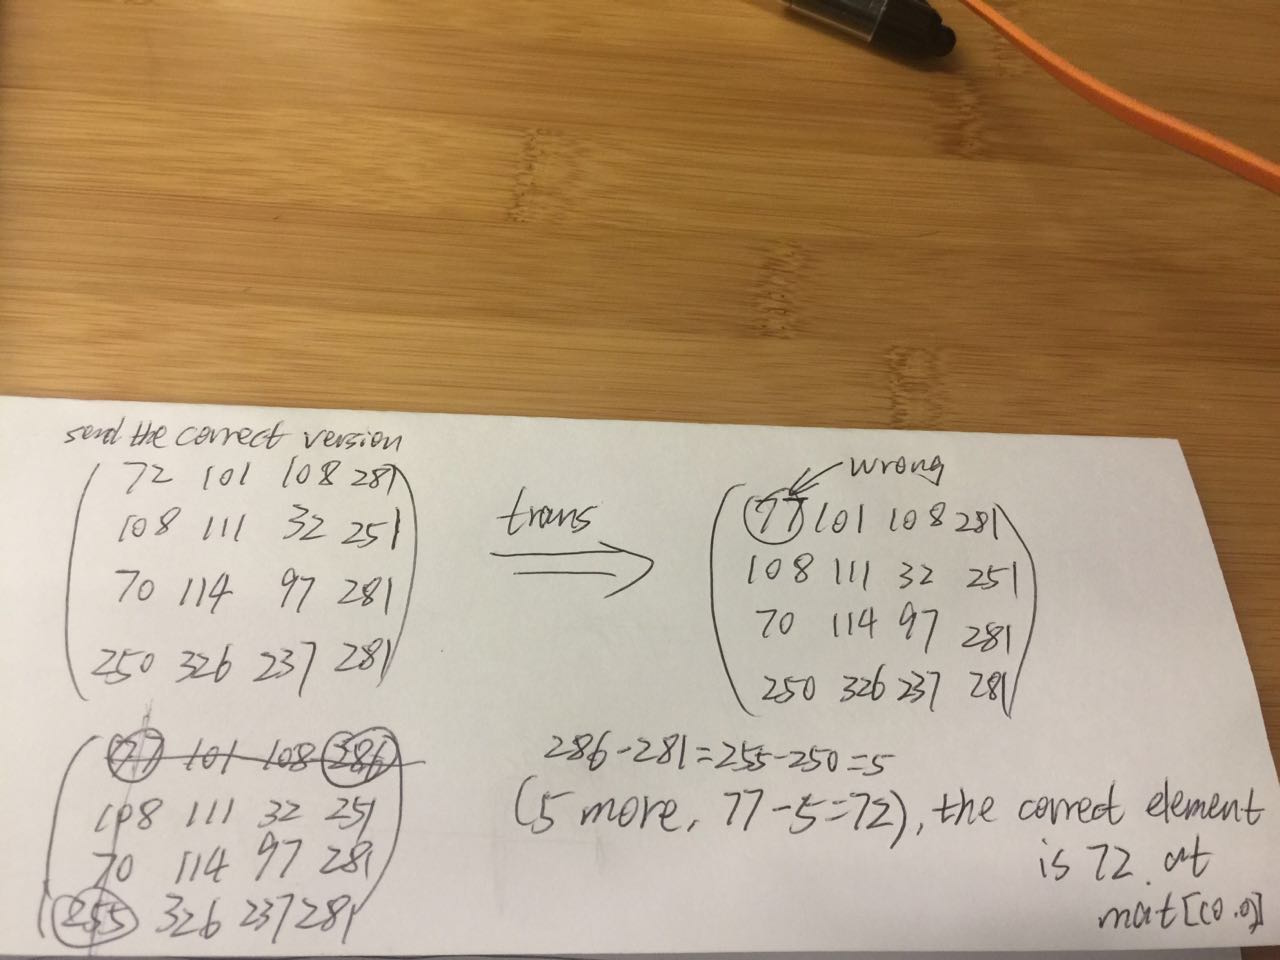 send the correct version
72 101 108 281
108 111 32 251
70 114 97 281
250 326 237 281
trans
wrong
77 101 108 281
108 111 32 251
70 114 97 281
250 326 237 281
77 101 108 286
108 111 32 251
70 114 97 281
255 326 237 281
286-281=255-250=5
(5 more, 77-5=72), the correct element
is 72 at
mat[(0.0)]